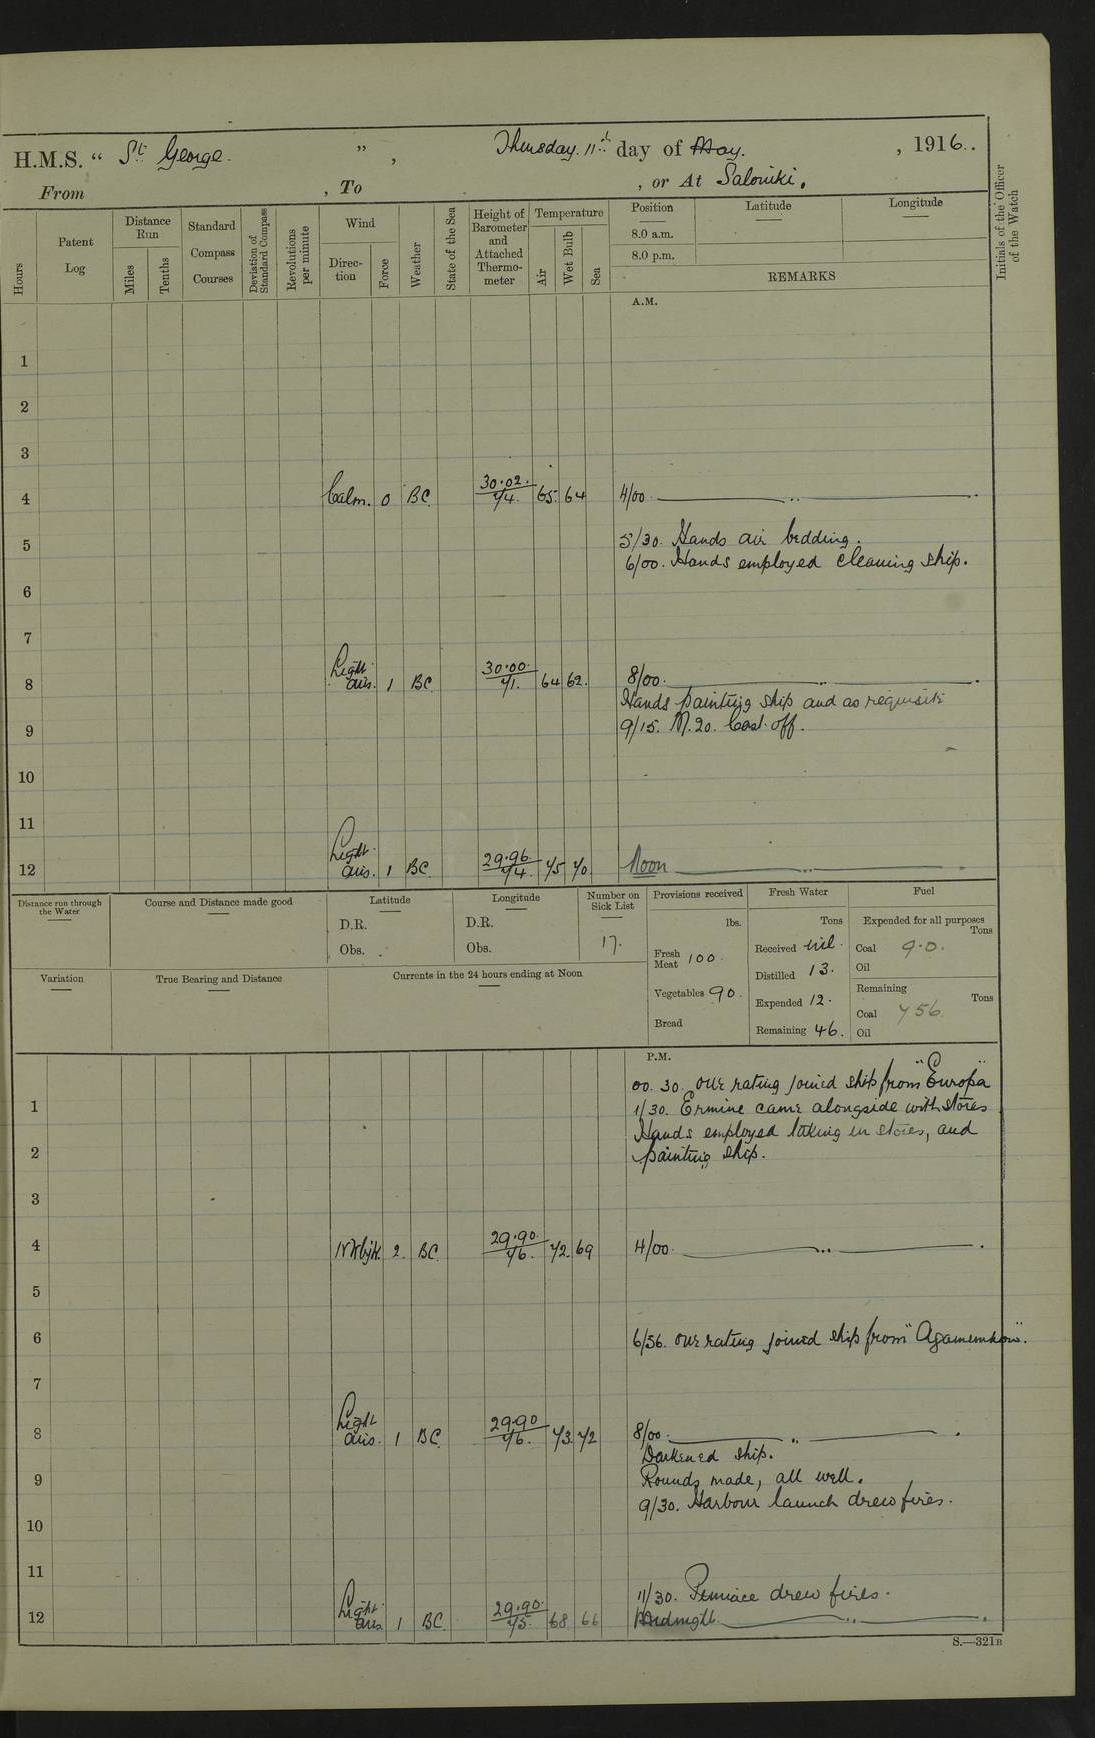 H.M.S. “ St. George. ” , Thursday. 11th day of May. , 1916..
From , To , or At Saloniki.
Hours
Patent Log
Distance Run
Miles
Tenths
Standard Compass Courses
Deviation of Standard Compass
Revolutions per minute
Wind
Direc-tion
Force
Weather
State of the Sea
Height of Barometer and Attached Thermo-meter
Temperature
Air
Wet Bulb
Sea
Position
8.0 a.m.
8.0 p.m.
Latitude
Longitude
REMARKS
Initials of the Officer of the Watch
A.M.
1
2
3
4 Calm. 0 BC. 30.02./74. 65. 64 4/00.
5 5/30. Hands air bedding.
6/00. Hands employed cleaning ship.
6
7
8 Light airs. 1 BC. 30.00./71. 64 62. 8/00.
Hands painting ship and as requisite
9 9/15. M.20. Cast off.
10
11
12 Light airs. 1 BC. 29.96/74. 75 70 Noon
Distance run through the Water
Course and Distance made good
Latitude
D.R.
Obs.
Longitude
D.R.
Obs.
Number on Sick List
17.
Provisions received
lbs.
Fresh Meat 100.
Vegetables 90.
Bread
Fresh Water
Tons
Received nil.
Distilled 13.
Expended 12.
Remaining 46.
Fuel
Expended for all purposes
Tons
Coal 9.0.
Oil
Remaining
Tons
Coal 756.
Oil
Variation
True Bearing and Distance
Currents in the 24 hours ending at Noon
P.M.
00.30. one rating joined ship from "Europa"
1 1/30. Ermine came alongside with stores
Hands employed taking in stores, and
2 painting ship.
3
4 2. BC. 29.90./76. 72. 69 4/00.
5
6 6/56. one rating joined ship from "Agamemnon".
7
8 Light airs. 1 BC. 29.90/76. 73. 72 8/00.
Darkened ship.
9 Rounds made, all well.
9/30. Harbour launch drew fires.
10
11
11/30. Pinnace drew fires.
12 Light airs. 1 BC. 29.90./75. 68 66 Midnight.
S.—321B